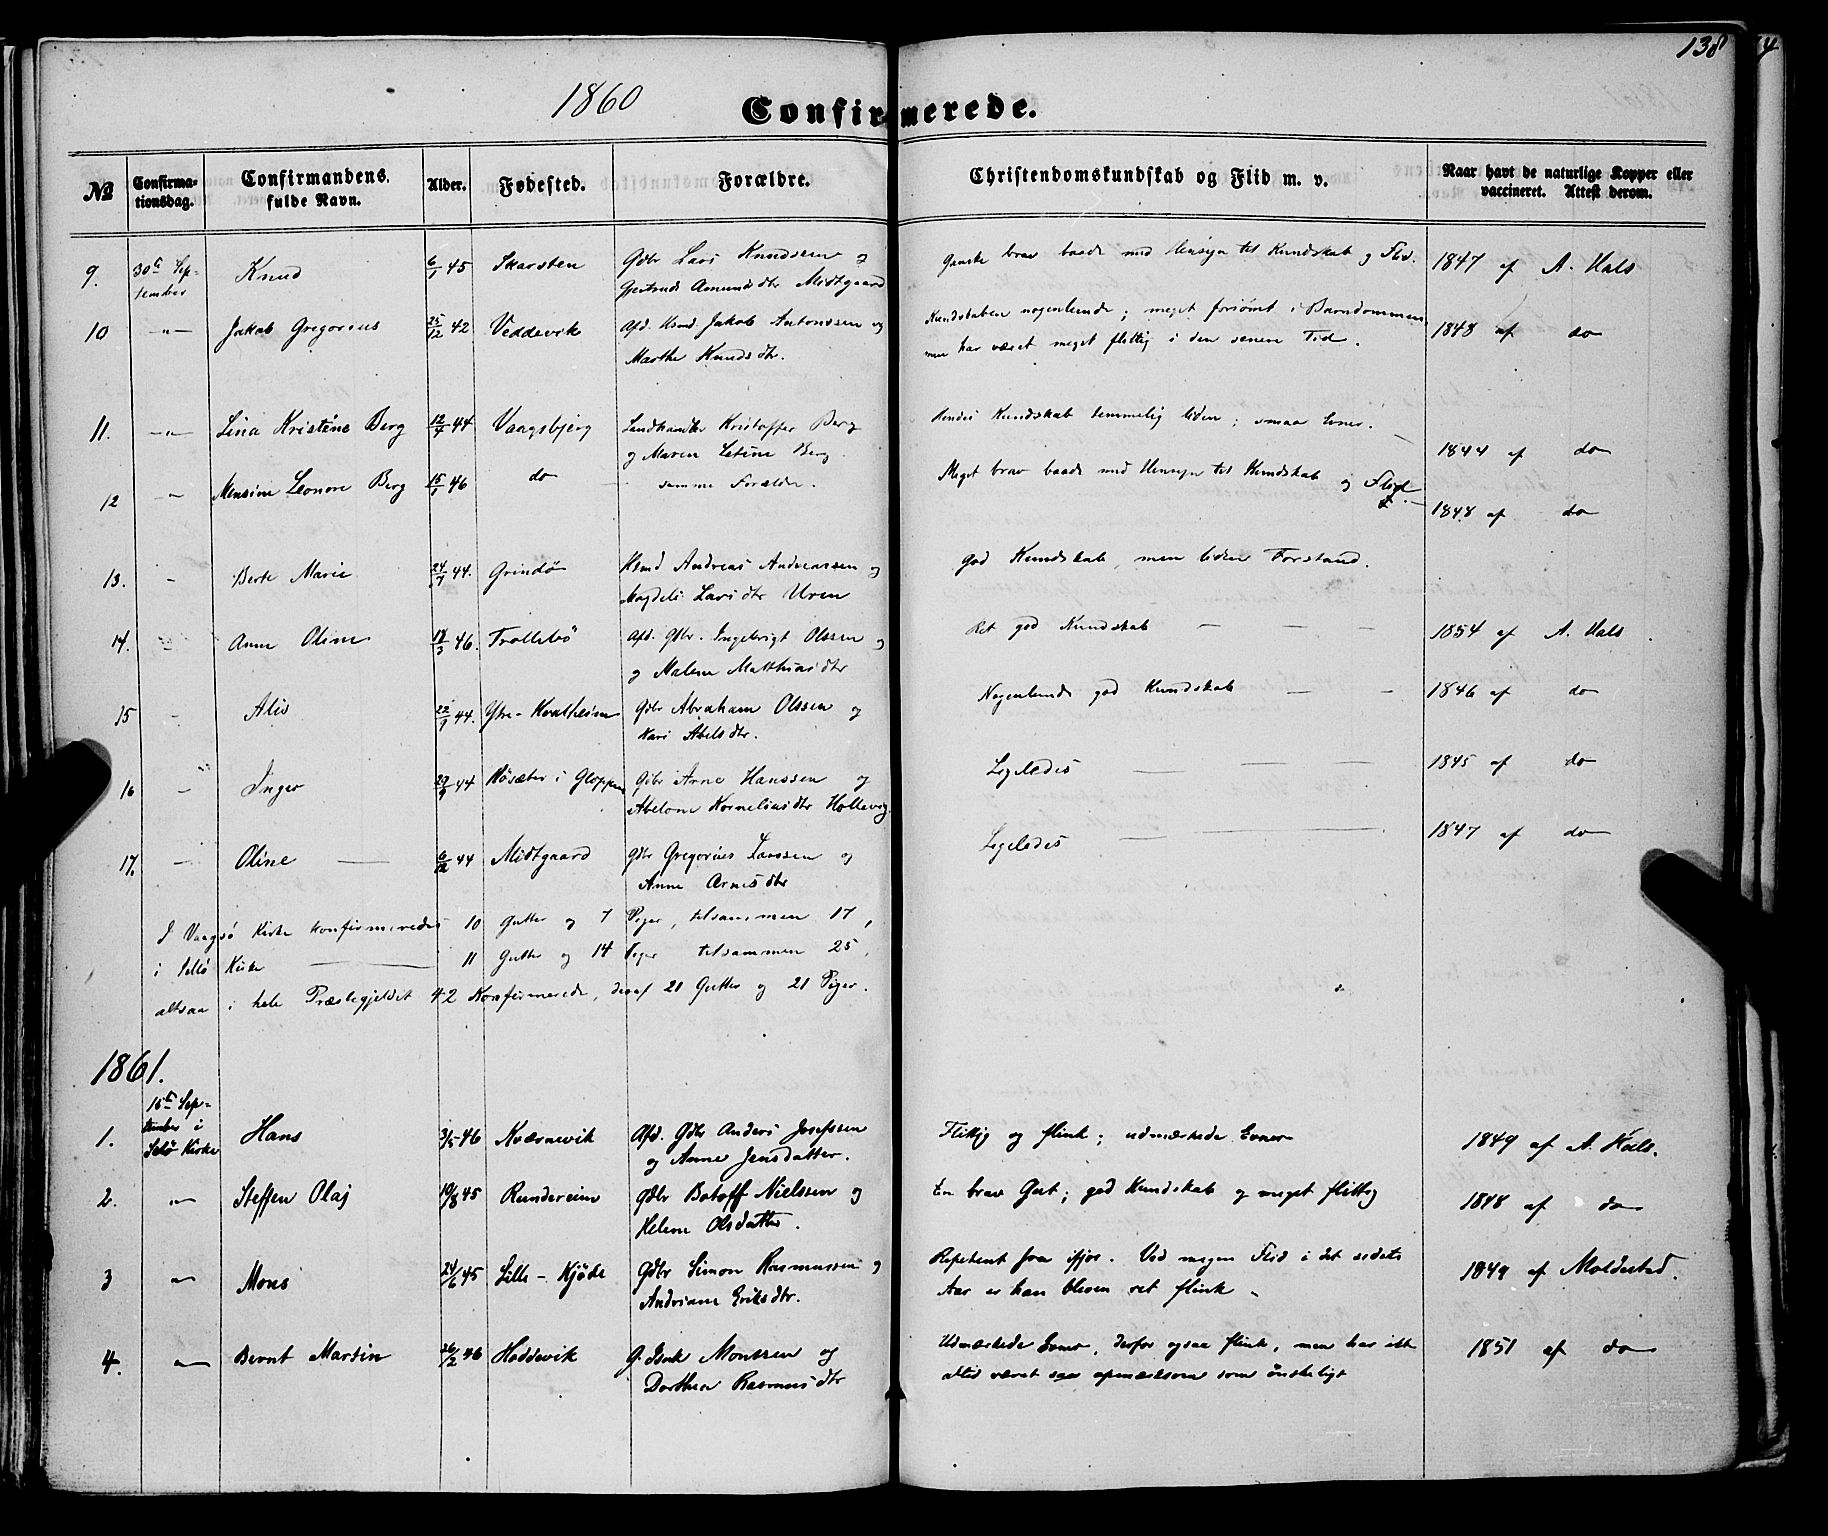 138
1860 Confirmerede.
No Confirma-tionsdag. Confirmandens fulde Navn. Alder. Fødested. Forældre. Christendomskundskab og Flid m. v. Naar havt de naturlige Kopper eller vaccineret. Attest derom.
9. 30te Sep- Knud 6/1 45 Skarsten Gdbr Lars Knudssen og Ganske brav baade med Hensyn til Kundskab og Flid. 1847 af A. Hals
tember Gjertrud Amundsdtr Midtgaard
10 -"- Jakob Gregorius 25/12 42 Veddevik Afd. Hsmd. Jakob Antonssen og Kundskaben nogenlunde; meget forsømt i Barndommen 1848 af do
Marthe Knudsdtr. men har været meget flittig i den senere Tid.
11. -"- Lina Kristine Berg 12/4 44 Vaagsbjerg Landhandler Kristoffer Berg Hendes Kundskab temmelig liden; smaa Evner. 1844 af do
og Maren Berg
12 " Leonore Berg 15/1 46 do samme Forældre. Meget brav baade med Hensyn til Kundskab og Flid 1848 af do
13. " Berte Marie 24/7 44. Grindø Hsmd Andreas Andreassen og god Kundskab, men liden Forstand.
Magdeli Larsdtr Uren
14. " Anne Oline 46. Trollebø Afd. Gdbr. Ingebrigt Olssen og Ret god Kundskab — — — 1854 af A. Hals
og Malene Matthiasdtr
15 " Alis 44. Ytre-Kvalheim Gdbr Abraham Olssen og Nogenlunde god Kundskab — — 1846 af do
Kari Abelsdtr.
16 " Inger 29/9 44 i Gloppen Gdbr Arne Hanssen og Ligeledes — — — 1845 af do
Abelone Korneliusdtr Hollevig
17. — Oline — 6/12 44 Midtgaard Gdbr Gregorius Larssen og Ligeledes — — — 1847 af do
Anne Arnesdtr
I Vaagsø Kirke konfirmeredes 10 Gutter og 7 Piger, tilsammen 17,
i Selø Kirke — 11 Gutter og 14 Piger tilsammen 25,
altsaa i hele Præstegjeldet 42 Konfirmerede, deraf 21 Gutter og 21 Piger.
1861.
1. 15te Sep- Hans 3/5 46 Kværnevik Afd. Gdbr Anders Josefssen Flittig og flink; udmærkede Evner 1849 af A. Hals.
tember i
Selø Kirke og Anne Jensdatter.
2. " Steffen Olaj 19/8 45 Rundereim Gdbr Botoff Nielssen og En brav Gut; god Kundskab og meget flittig 1848 af do
Helene Olsdatter.
3 " Mons 24/6 45 Lille-Kjøde Gdbr Simon Rasmussen og Repetent fra ifjor. Ved megen Flid i det sidste 1849 af Moldestad.
Andriane Eriksdtr. Aar er han bleven ret flink.
4. " Bernt Martin 26/2 46 Hoddevik G. Isak Monssen og Udmærkede Evner, derfor ogsaa flink, men har ikke 1851 af do
Dorthea Rasmusdtr altid været saa opmærksom som ønskeligt